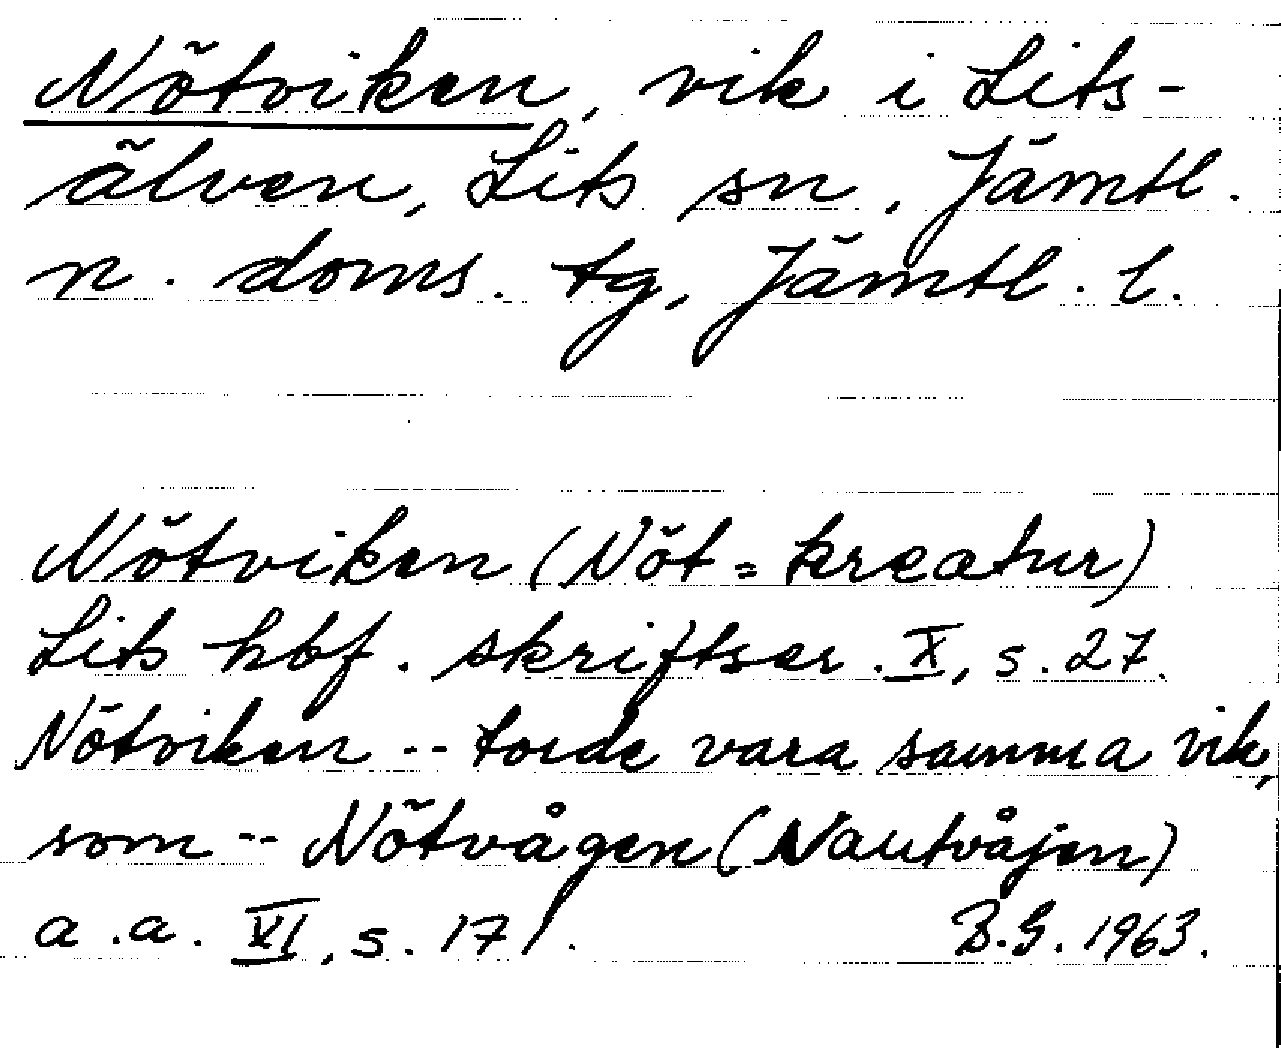 Nötviken, vik i Lits-
älven, Lits sn, Jämtl.
n. doms. tg, Jämtl. l.
Nötviken (Nöt = kreatur)
Lits hbf. skriftser. X, s. 27.
Nötviken -- torde vara samma vik,
som -- Nötvågen (Nautvåjen)
a.a. VI, s. 171.
B.G. 1963.